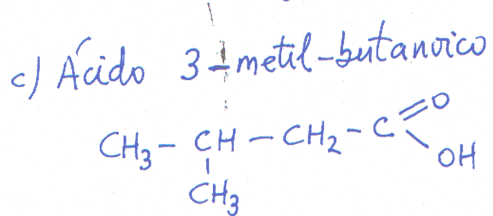 c) Ácido 3-metil-butanoico
CH3 - CH - CH2 - C = O
OH
CH3